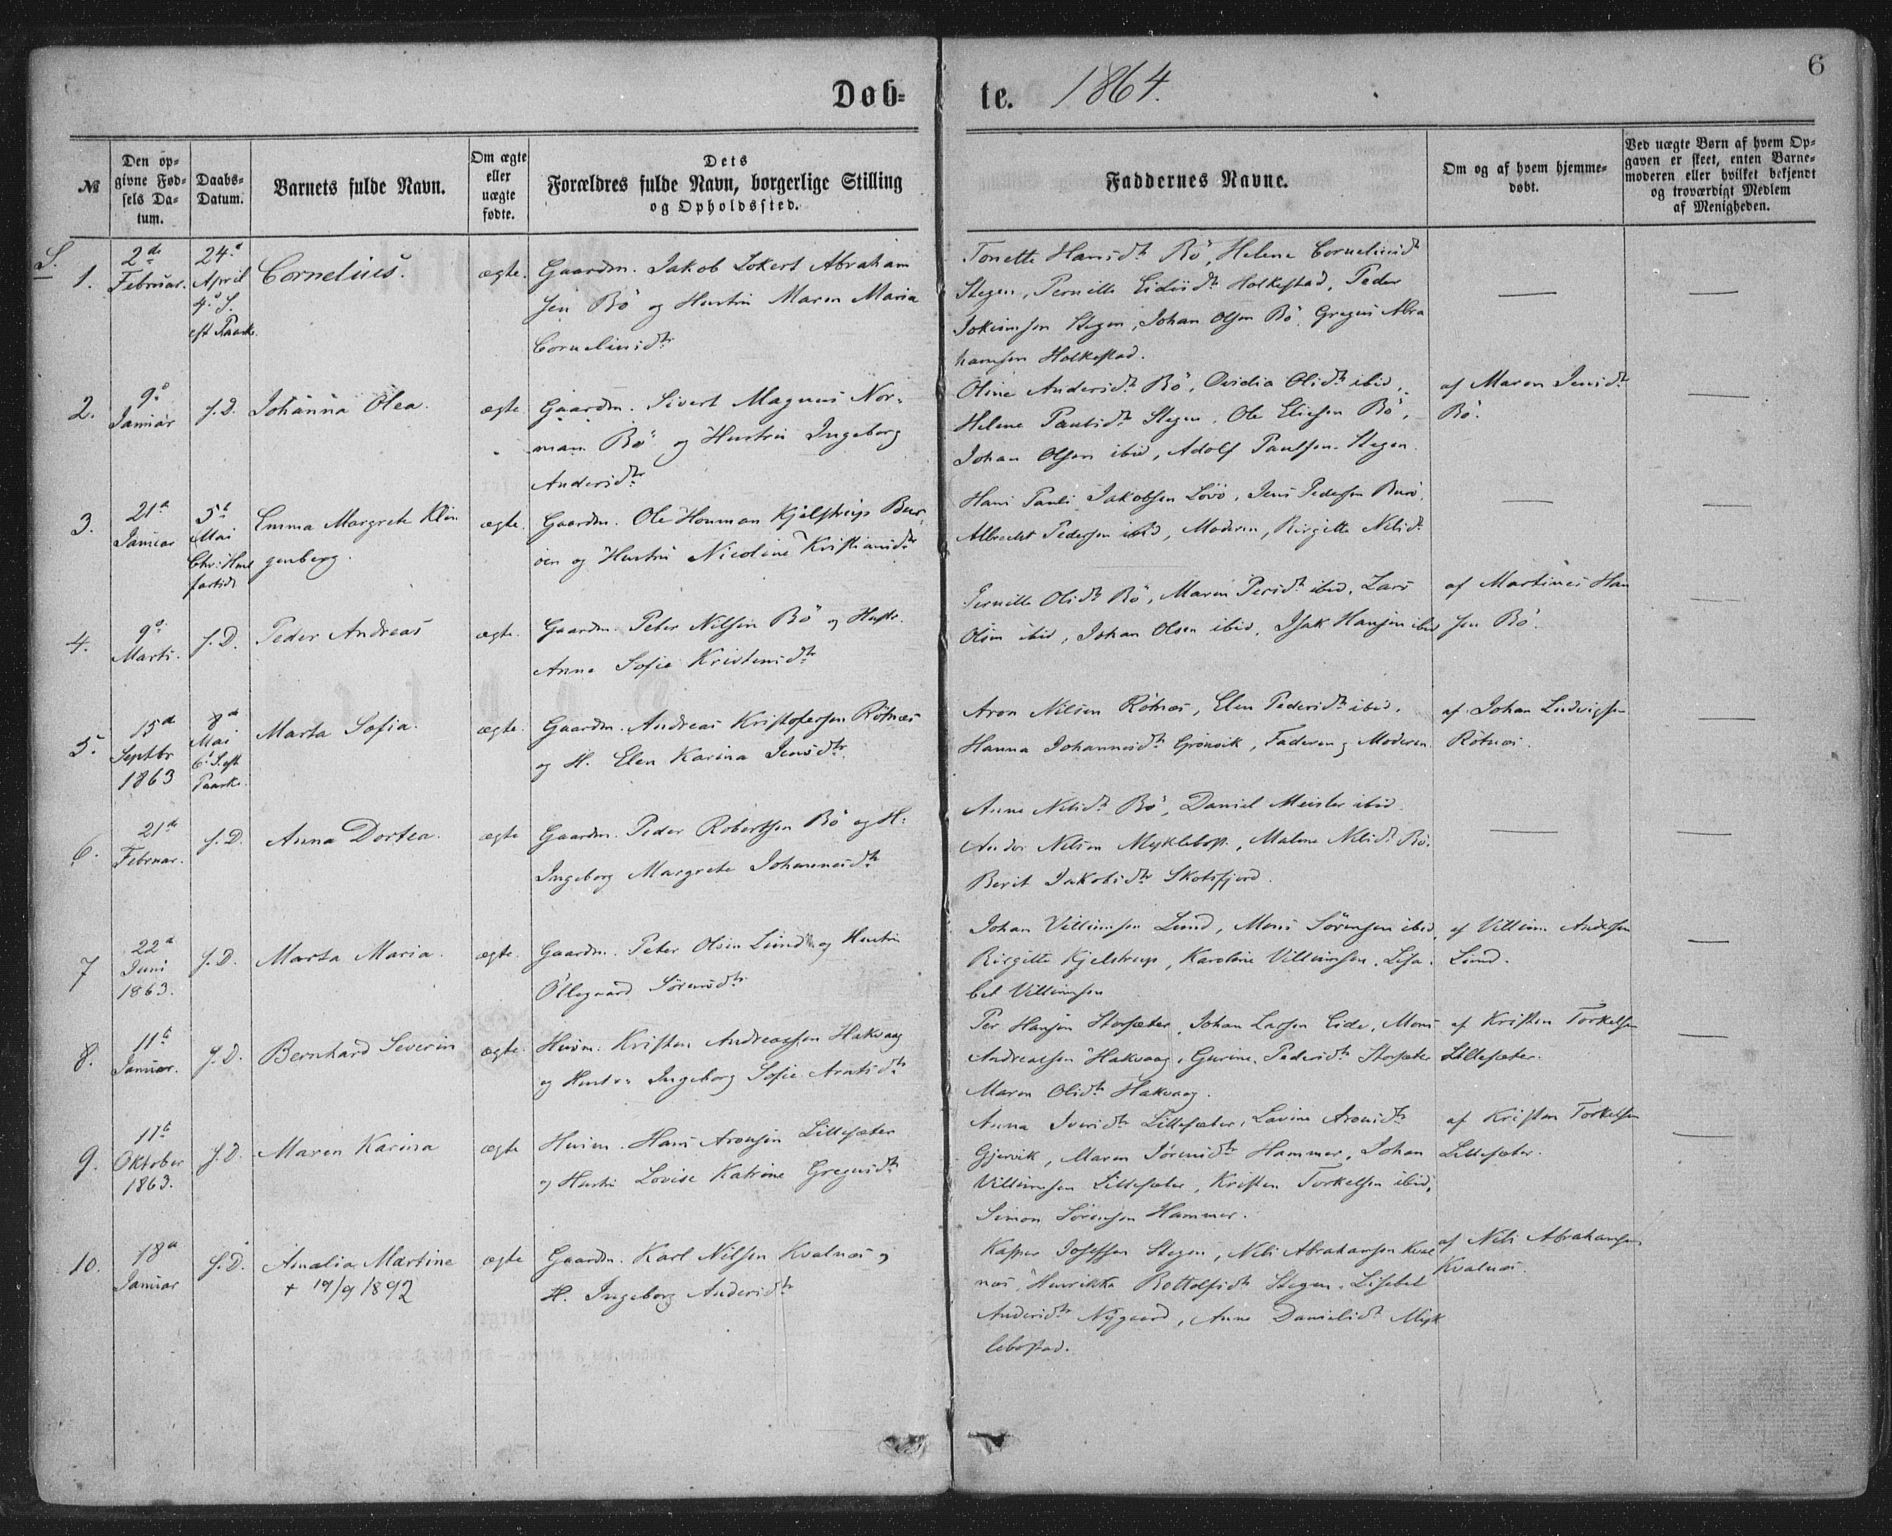 Døb-
te. 1864.
6
№
Den op-
givne Fød-
sels Da-
tum.
Daabs-
Datum.
Barnets fulde Navn.
Om ægte
eller
uægte
fødte.
Dets
Forældres fulde Navn, borgerlige Stilling
og Opholdssted.
Faddernes Navne.
Om og af hvem hjemme-
døbt.
Ved uægte Børn af hvem Op-
gaven er skeet, enten Barne-
moderen eller hvilket bekjendt
og troværdigt Medlem
af Menigheden.
S.
1.
2de
Februar.
24de
April
4. S.
eft Paaske.
Cornelius.
ægte.
Gaardm. Jakob Lokert Abraham
sen Bö og Hustru Maren Maria
Corneliusdtr
Tonette Hansdtr Bö, Helene Corneliusdtr
Stegen, Pernille Holkestad, Peder
Jokumsen Stegen, Johan Olsen Bö, Gregus Abra
hamsen Holkestad.
2.
9de
Januar
s. D.
Johanna Olea.
ægte
Gaardm. Sivert Magnus Nor-
mann Bö og Hustru Ingeborg
Andersdtr
Oline Andersdtr Bö, Ovidia Olsdtr ibid.
Helene Paulsdtr Stegen, Ole Eliesen Bö,
Johan Olsen ibid, Adolf Paulsen Stegen.
af Maren Jensdtr
Bö.
3.
21de
Januar
5te
Mai
Chr: Him
fartsd.
Emma Margrete Klin
genberg.
ægte.
Gaardm. Ole Houman Kjelstrup Bur-
öen og Hustru Nicoline Kristiansdtr
Hans Pauli Jakobsen Lövö, Jens Pedersen Burö,
Albrecht Pedersen ibid, Moderen, Birgitte Nilsdtr
4.
9de
Marts.
s. D.
Peder Andreas
ægte.
Gaardm. Peter Nilsen Bö og Hustr.
Anne Sofie Kristensdtr
Pernille Olsdtr Bö, Maren Persdtr ibid, Lars
Olsen ibid, Johan Olsen ibid, Isak Hansen ibid
af Martinus Han
sen Bö.
5.
15de
Septbr
1863
8de
Mai
6. S. eft
Paaske.
Marta Sofia.
ægte.
Gaardm. Andreas Kristofersen Rötnæs
og H. Elen Karina Jensdtr.
Aron Nilsen Rötnæs, Elen Pedersdtr ibid,
Hanna Johannesdtr Grönvik, Faderen og Moderen.
af Johan Ludvigsen
Rötnæs.
6.
21de
Februar.
s. D.
Anna Dortea.
ægte
Gaardm. Peder Robertsen Bö og H.
Ingeborg Margrete Johannesdtr
Anne Nilsdtr Bö, Daniel Meisler ibid.
Andor Nilsen Myklebost, Malene Nilsdtr Bö.
Berit Jakobsdtr Skotsfjord.
7
22de
Juni
1863.
s. D.
Marta Maria.
ægte.
Gaardm. Peter Olsen Lund og Hustru
Ollegaard Sörensdtr
Johan Villumsen Lund, Mons Sörensen ibid,
Birgitte Kjelstrup, Karoline Villumsen, Lisa-
bet Villumsen
af Villum Andersen
Lund.
8.
11te
Januar.
s. D.
Bernhard Severin
ægte.
Husm. Kristen Andreassen Hakvaag
og Hustru Ingeborg Sofie Arntsdtr
Per Hansen Storsæter, Johan Larsen Eide, Mons
Andreassen Hakvaag, Gurine Pedersdtr Storsæter
Maren Olsdtr Hakvaag.
af Kristen Torkelsen
Lillesæter.
9.
11te
Oktober
1863.
s. D.
Maren Karina
ægte
Husm. Hans Aronsen Lillesæter
og Hustru Lovise Katrine Gregusdtr
Anna Iversdtr Lillesæter, Lavina Aronsdtr
Gjervik, Maren Sörensdtr Hammer, Johan
Villumsen Lillesæter, Kristen Torkelsen ibid,
Simon Sörensen Hammer.
af Kristen Torkelsen
Lillesæter.
10.
18de
Januar
s. D.
Amalia Martine
+ 19/9 1892
ægte
Gaardm. Karl Nilsen Kvalnæs og
H. Ingeborg Andersdtr
Kasper Josefsen Stegen, Nils Abrahamsen Kval
næs, Henrikka Bottolfsdtr Stegen, Lisebet
Andersdtr Nygaard, Anne Danielsdtr Myk
lebostad.
af Nils Abrahamsen
Kvalnæs.